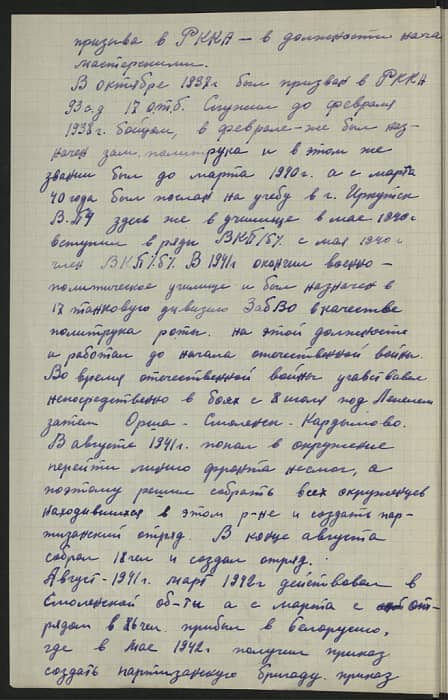 призыва в РККА — в должности нача
мастерскими.
В октябре 1937г был призван в РККА
93 с.д 17 отб. Служил до февраля
1938г. бойцом, в феврале-же был наз-
начен зам. политрука и в этом же
звании был до марта 1940г. а с марта
40 года был послан на учебу в г. Иркутск
В.ПУ здесь же в училище в мае 1940г
вступил в ряды ВКП/б/. с мая 1940г
член ВКП/б/. В 1941г окончил военно-
политическое училище и был назначен в
17 танковую дивизию ЗабВО в качестве
политрука роты. на этой должности
и работал до начала отечественной войны.
Во время отечественной войны учавствовал
непосредственно в боях с 8 июля под Лепелем
затем Орша - Смоленск - Кардымово.
В августе 1941г. попал в окружение
перейти линию фронта несмог, а
поэтому решил собрать всех окруженцев
находившихся в этом р-не и создать пар-
тизанский отряд. В конце августа
собрал 18 чел и создал отряд.
Август-1941г. март 1942г действовал в
Смоленской об-ти а с марта с от-
рядом в 86 чел. прибыл в Белоруссию,
где в мае 1942г. получил приказ
создать партизанскую бригаду. приказ